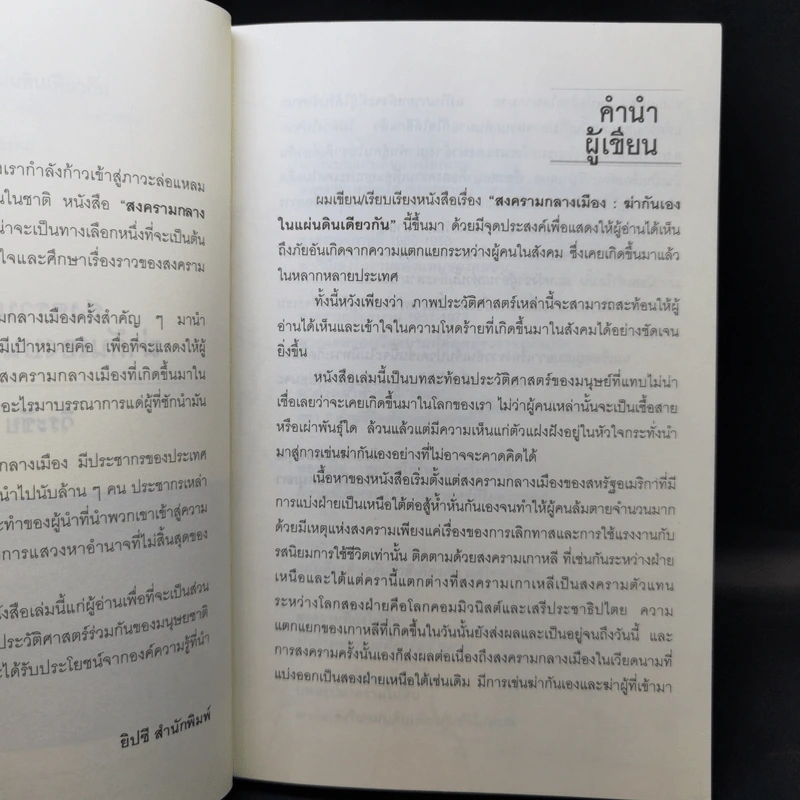 งเรากำลังก้าวเข้าสู่ภาวะล่อแหลม
นในชาติ หนังสือ “สงครามกลาง
น่าจะเป็นทางเลือกหนึ่งที่จะเป็นต้น
ใจและศึกษาเรื่องราวของสงคราม
มกลางเมืองครั้งสำคัญ ๆ มานำ
มีเป้าหมายคือ เพื่อที่จะแสดงให้ผู้
สงครามกลางเมืองที่เกิดขึ้นมาใน
อะไรมาบรรณาการแด่ผู้ที่ชักนำมัน
กลางเมือง มีประชากรของประเทศ
นำไปนับล้าน ๆ คน ประชากรเหล่า
ะทำของผู้นำที่นำพวกเขาเข้าสู่ความ
การแสวงหาอำนาจที่ไม่สิ้นสุดของ
นังสือเล่มนี้แก่ผู้อ่านเพื่อที่จะเป็นส่วน
ประวัติศาสตร์ร่วมกันของมนุษยชาติ
ะได้รับประโยชน์จากองค์ความรู้ที่นำ
ยิปซี สำนักพิมพ์
คำนำ
ผู้เขียน
ผมเขียน/เรียบเรียงหนังสือเรื่อง “สงครามกลางเมือง : ฆ่ากันเอง
ในแผ่นดินเดียวกัน” นี้ขึ้นมา ด้วยมีจุดประสงค์เพื่อแสดงให้ผู้อ่านได้เห็น
ถึงภัยอันเกิดจากความแตกแยกระหว่างผู้คนในสังคม ซึ่งเคยเกิดขึ้นมาแล้ว
ในหลากหลายประเทศ
ทั้งนี้หวังเพียงว่า ภาพประวัติศาสตร์เหล่านี้จะสามารถสะท้อนให้ผู้
อ่านได้เห็นและเข้าใจในความโหดร้ายที่เกิดขึ้นมาในสังคมได้อย่างชัดเจน
ยิ่งขึ้น
หนังสือเล่มนี้เป็นบทสะท้อนประวัติศาสตร์ของมนุษย์ที่แทบไม่น่า
เชื่อเลยว่าจะเคยเกิดขึ้นมาในโลกของเรา ไม่ว่าผู้คนเหล่านั้นจะเป็นเชื้อสาย
หรือเผ่าพันธุ์ใด ล้วนแล้วแต่มีความเห็นแก่ตัวแฝงฝังอยู่ในหัวใจกระทั่งนำ
มาสู่การเข่นฆ่ากันเองอย่างที่ไม่อาจจะคาดคิดได้
เนื้อหาของหนังสือเริ่มตั้งแต่สงครามกลางเมืองของสหรัฐอเมริกาที่มี
การแบ่งฝ่ายเป็นเหนือใต้ต่อสู้น้ำหั่นกันเองจนทำให้ผู้คนล้มตายจำนวนมาก
ด้วยมีเหตุแห่งสงครามเพียงแค่เรื่องของการเลิกทาสและการใช้แรงงานกับ
รสนิยมการใช้ชีวิตเท่านั้น ติดตามด้วยสงครามเกาหลี ที่เช่นกันระหว่างฝ่าย
เหนือและใต้แต่ครานี้แตกต่างที่สงครามเกาเหลีเป็นสงครามตัวแทน
ระหว่างโลกสองฝ่ายคือโลกคอมมิวนิสต์และเสรีประชาธิปไตย ความ
แตกแยกของเกาหลีที่เกิดขึ้นในวันนั้นยังส่งผลและเป็นอยู่จนถึงวันนี้ และ
การสงครามครั้งนั้นเองก็ส่งผลต่อเนื่องถึงสงครามกลางเมืองในเวียดนามที่
แบ่งออกเป็นสองฝ่ายเหนือใต้เช่นเดิม มีการเข่นฆ่ากันเองและฆ่าผู้ที่เข้ามา